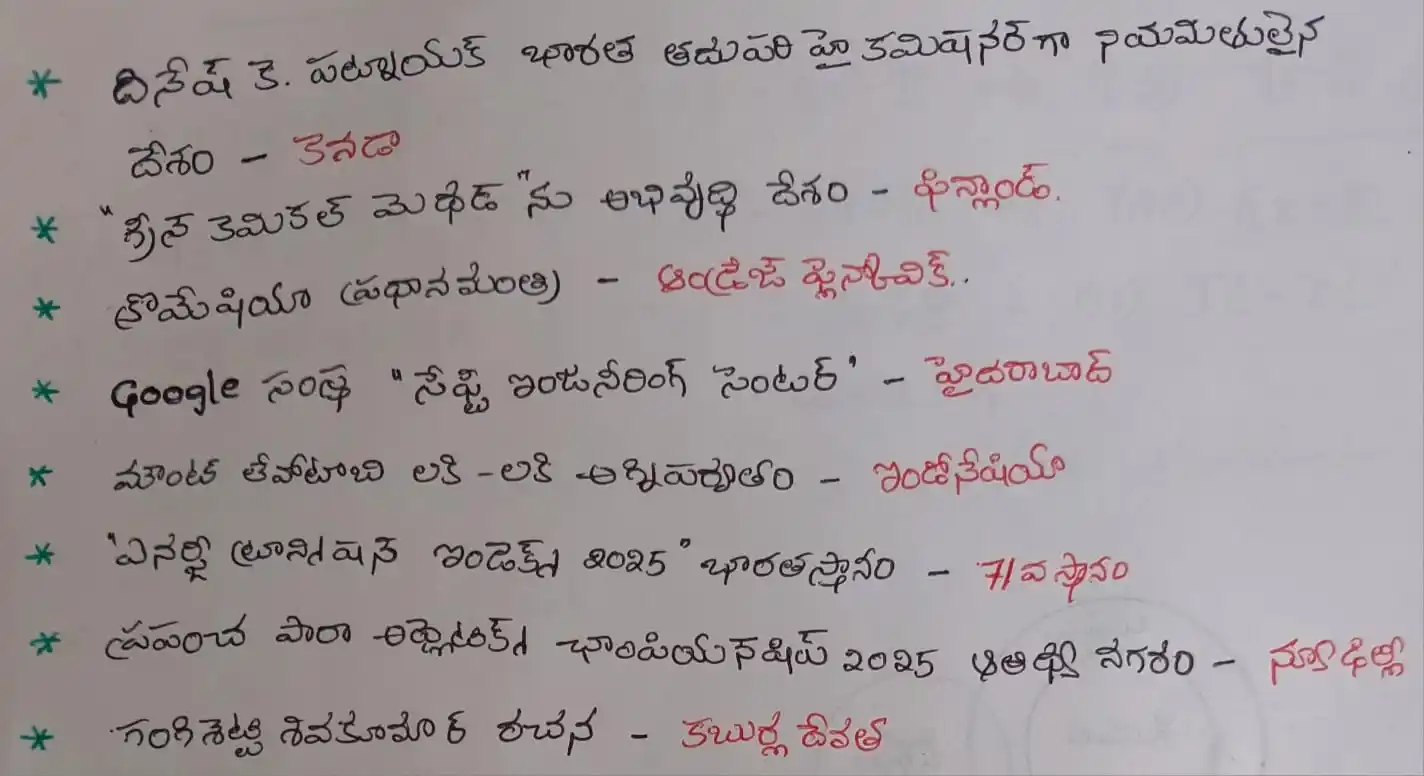 * దినేష్ కె. పట్నాయక్ భారత తదుపరి హై కమిషనర్ గా నియమితులైన
దేశం - కెనడా
* "గ్రీన్ కెమికల్ మెథడ్"ను అభివృద్ధి దేశం - ఫిన్లాండ్.
* క్రొమేషియా ప్రధానమంత్రి - ఆండ్రెజ్ ప్లెన్కోవిక్..
* Google సంస్థ "సేఫ్టి ఇంజనీరింగ్ సెంటర్" - హైదరాబాద్
* మౌంట్ లేవోటూబి లకి - లకి అగ్నిపర్వతం - ఇండోనేషియా
* "ఎనర్జీ ట్రాన్సిషన్ ఇండెక్స్ 2025" భారతస్థానం - 71వ స్థానం
* ప్రపంచ పారా అథ్లెటిక్స్ ఛాంపియన్‌షిప్ 2025 ఆతిథ్య నగరం - న్యూఢిల్లీ
* గంగిశెట్టి శివకుమార్ రచన - కబుర్ల దేవత